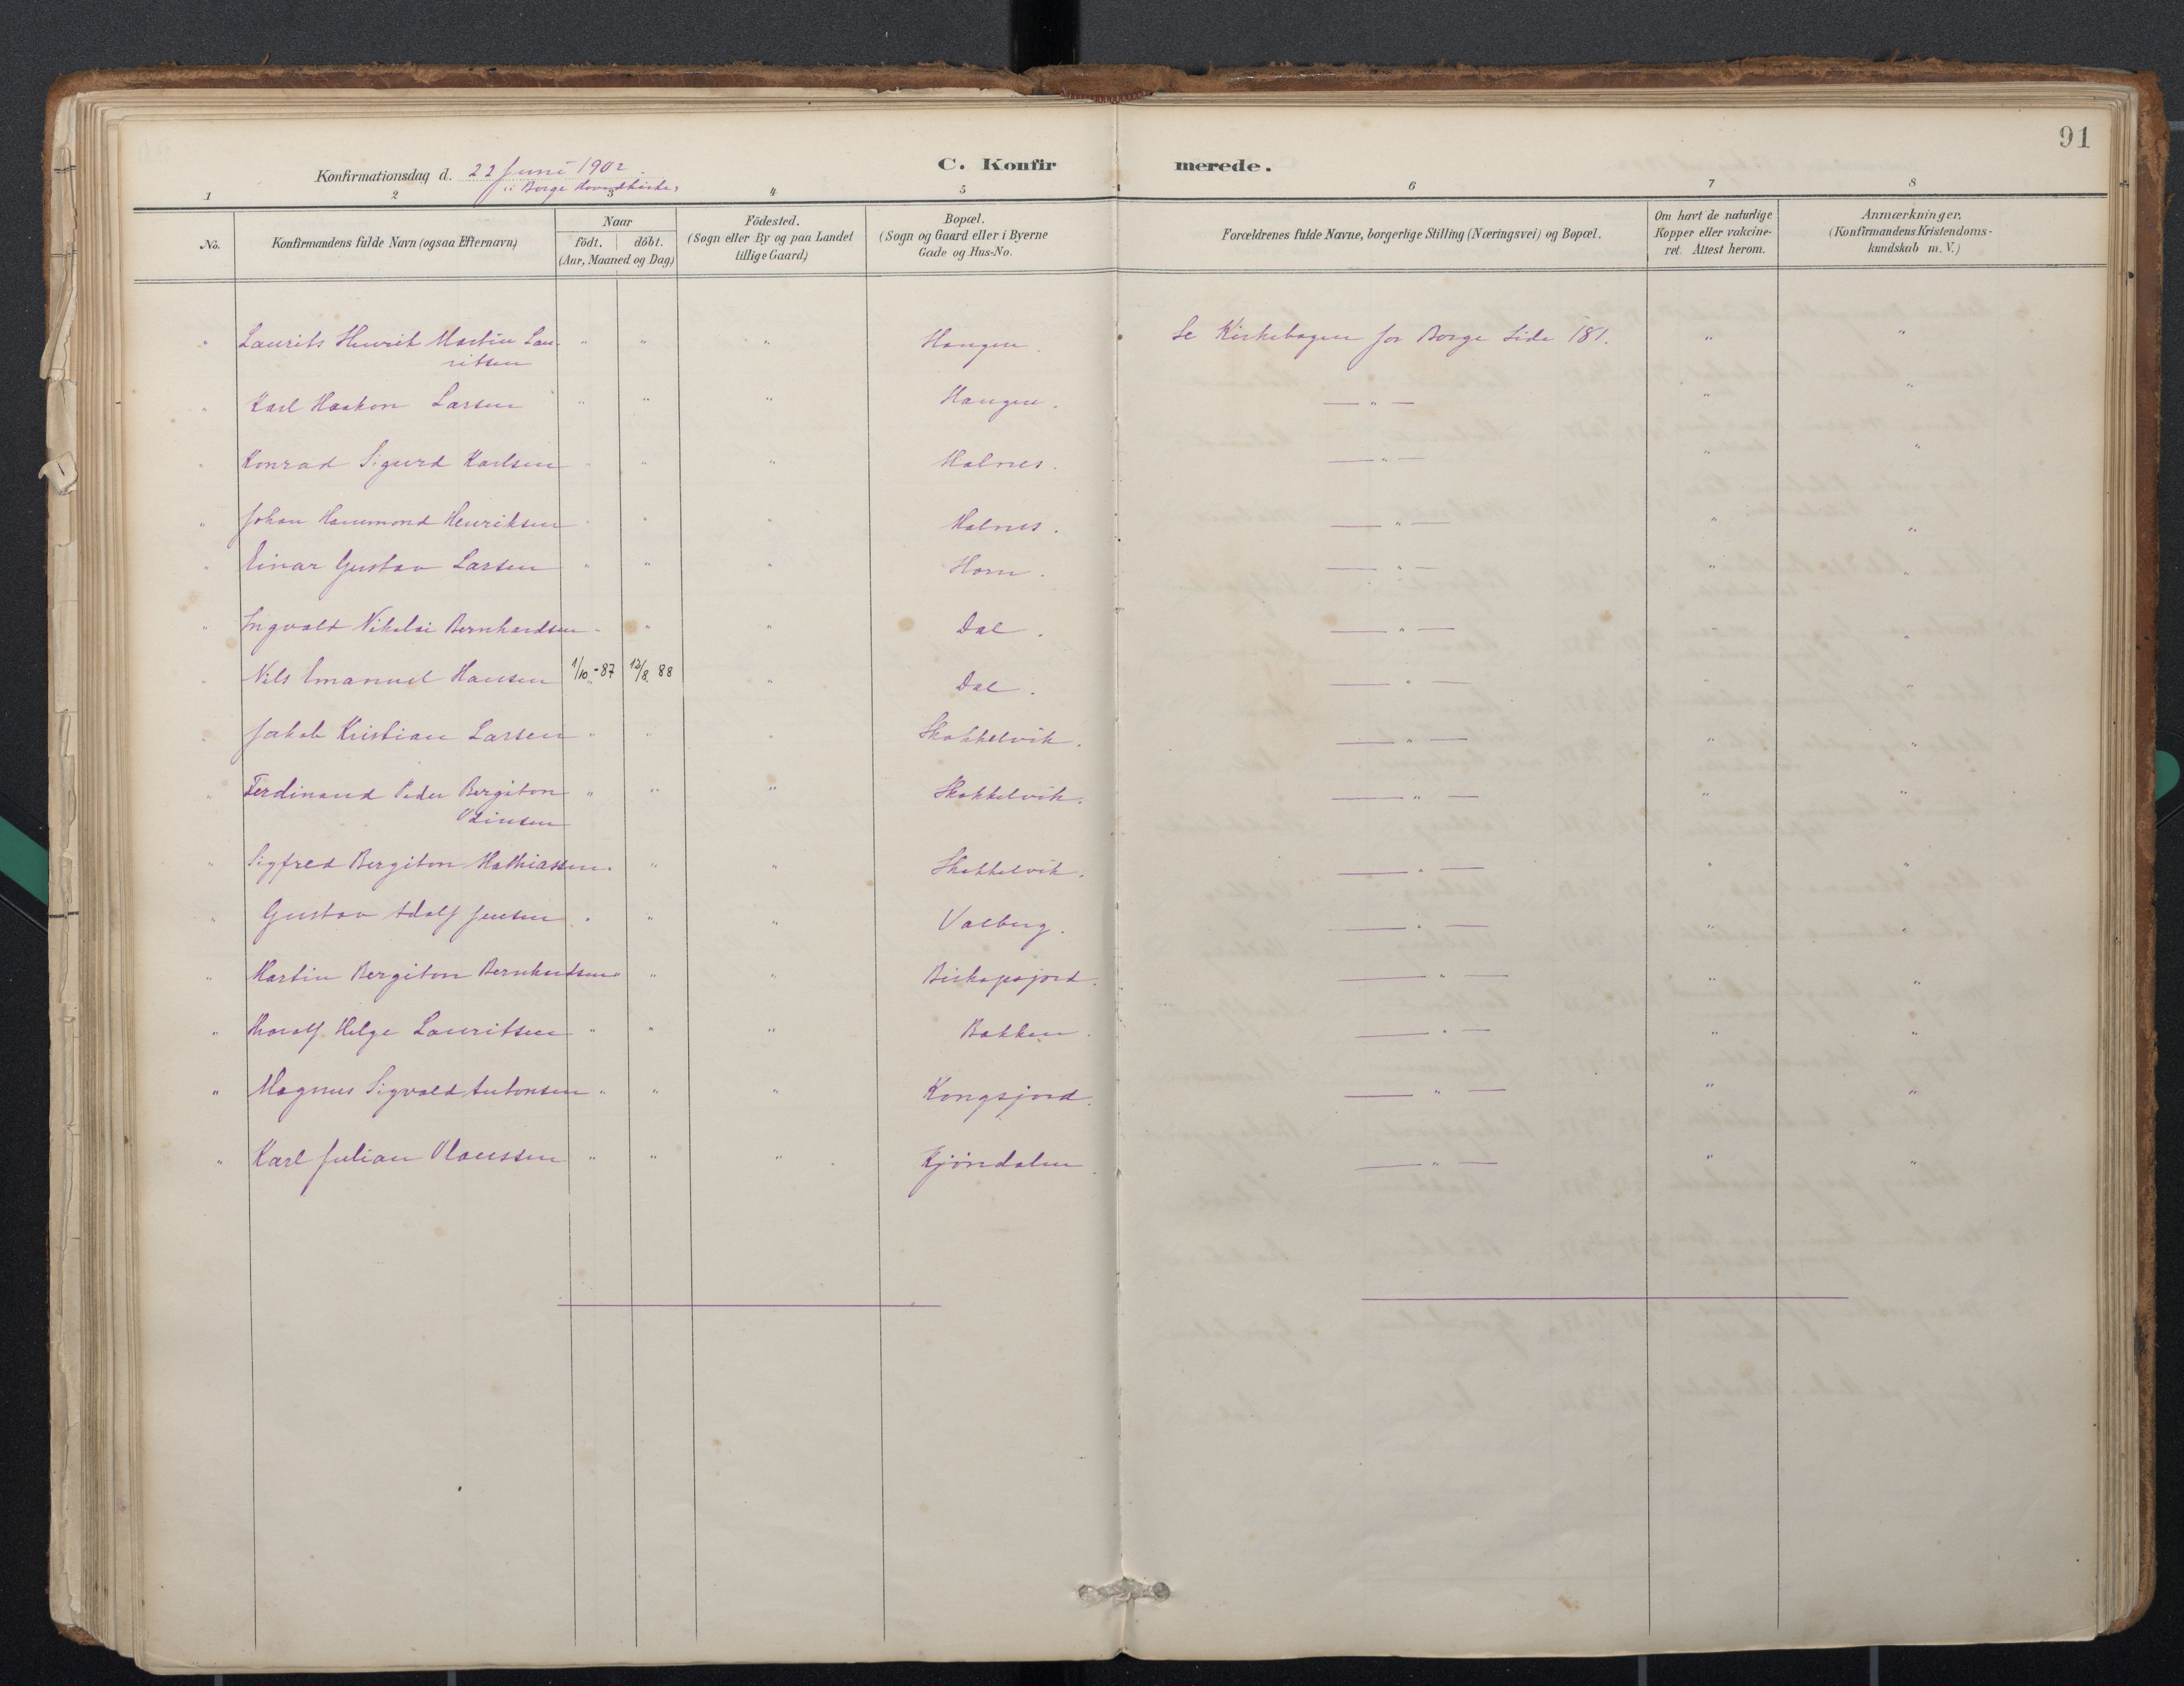 91
C. Konfirmerede.
Konfirmationsdag d. 22 Juni 1902.
i Borge Hovedkirke,
1 2 3 4 5 6 7 8
No.
Konfirmandens fulde Navn (ogsaa Efternavn)
Naar
födt. döbt.
(Aar, Maaned og Dag)
Födested.
(Sogn eller By og paa Landet
tillige Gaard)
Bopæl.
(Sogn og Gaard eller i Byerne
Gade og Hus-No.
Forældrenes fulde Navne, borgerlige Stilling (Næringsvei) og Bopæl.
Om havt de naturlige
Kopper eller vakcine-
ret. Attest herom.
Anmærkninger.
(Konfirmandens Kristendoms-
kundskab m. V.)
" Laurits Henrik Martin Lau- " " " Haugen. Se Kirkebogen for Borge Side 181. " "
ritsen
" Karl Haakon Larsen " " " Haugen. — " — " "
" Konrad Sigurd Karlsen " " " Holnes. — " — " "
" Johan Hammond Henriksen " " " Holnes. — " — " "
" Einar Gustav Larsen " " " Horn. — " — " "
" Ingvald Nikolai Bernhardsen " " " Dal. — " — " "
" Nils Emanuel Hansen 1/10 -87 12/8 88 " Dal. — " — " "
" Jakob Kristian Larsen " " " Skokkelvik. — " — " "
" Ferdinand Peder Bergiton " " " Skokkelvik. — " — " "
Olinsen
" Sigfred Bergiton Mathiassen. " " Skokkelvik. — " — " "
" Gustav Adolf Jensen " " " Valberg. — " — " "
" Martin Bergiton Bernhardsen " " " Biskopsjord. — " — " "
" Thoralf Helge Lauritsen " " " Bakken. — " — " "
" Magnus Sigvald Antonsen " " " Kongsjord. — " — " "
" Karl Julian Olaussen " " " Kjöndalen. — " — " "